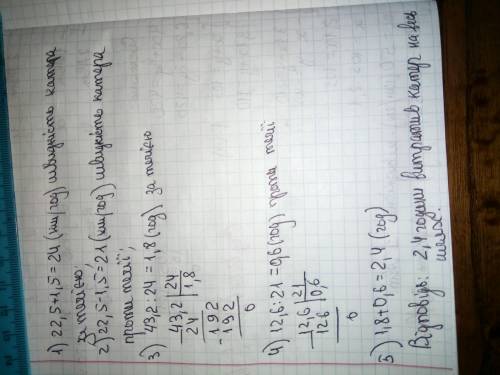 1) 22,5+1,5=24 (км/год) швидкість катера
за течією;
2) 22,5-1,5=21 (км/год) швидкість катера
проти течії;
3) 43,2:24=1,8 (год) за течією
43,2 | 24
24 | 1,8
192
192
0
4) 12,6:21=0,6 (год) проти течії
12,6 | 21
12 6 | 0,6
0
5) 1,8+0,6=2,4 (год)
Відповідь: 2,4 години витратив катер на весь
шлях.